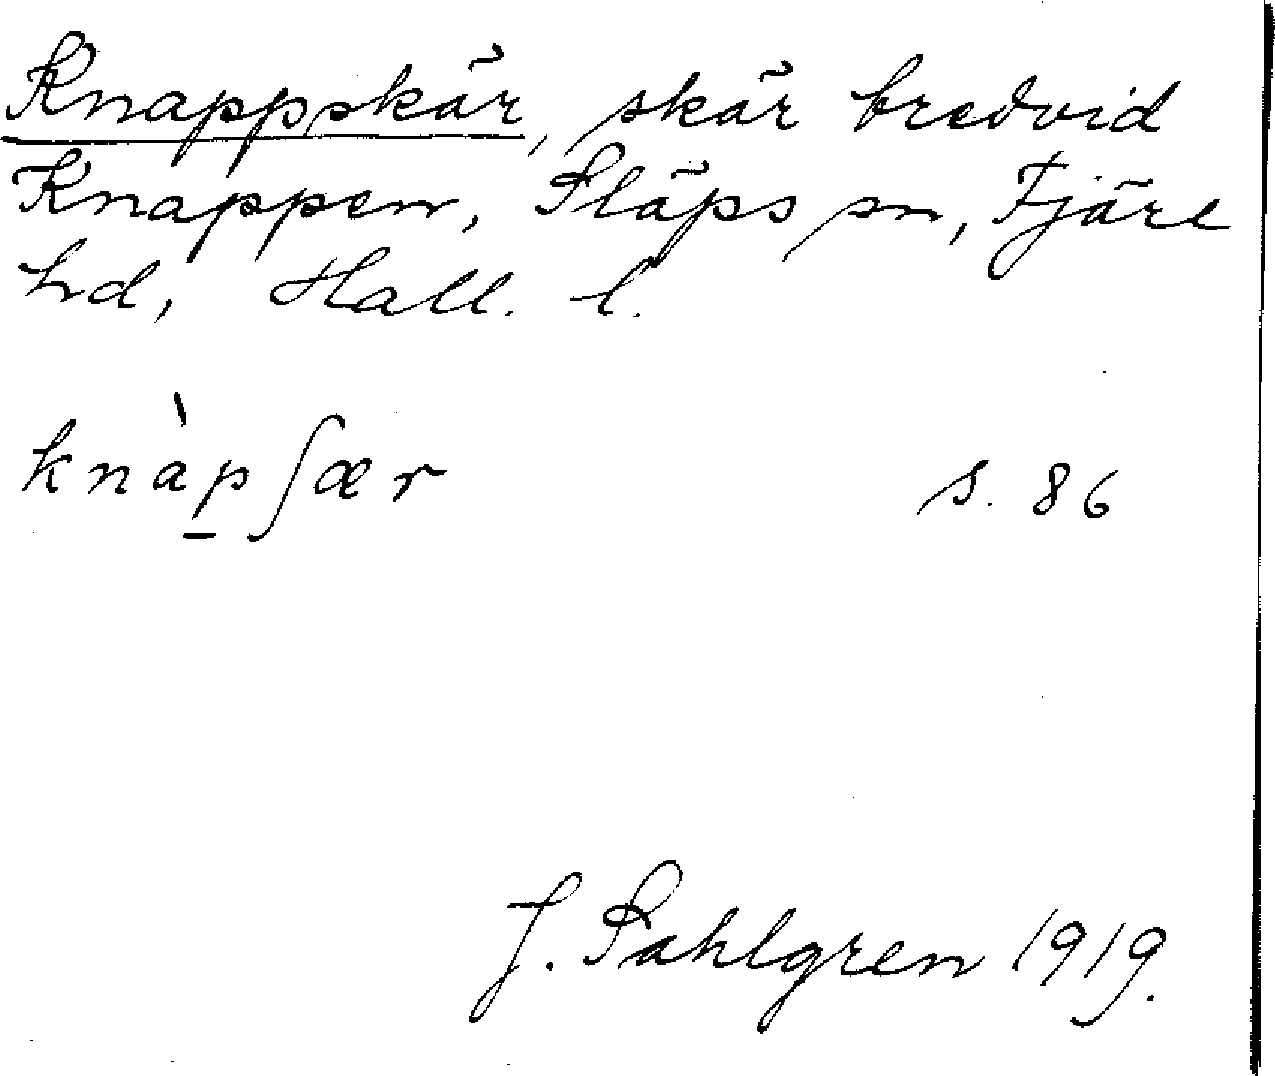 Knappskär, skär bredvid
Knappen, Släps sn, Fjäre
hd, Hall. l.
knàpʃær s. 86
J. Sahlgren 1919.